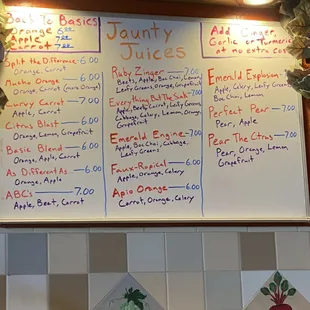 Back To Basics
Orange 6.00
Apple 7.00
Carrot 7.00
Split the Difference - 6.00
Orange, Carrot
Mucho Orange 6.00
Orange, Carrot (mucho Orange)
Curvy Carrot 7.00
Apple, Carrot
Citrus Blast 6.00
Orange, Lemon, Grapefruit
Basic Blend 6.00
Orange, Apple, Carrot
As Different As 6.00
Orange, Apple
ABC's 7.00
Apple, Beet, Carrot
Jaunty
Juices
Ruby Zinger 7.00
Beets, Apple, Bac Choi, Lemon,
Leafy Greens, Orange, Grapefruit
Everything But The Sink - 7.00
Orange, Apple, Carrot, Leafy Greens,
Cabbage, Celery, Lemon,
Grapefruit
Emerald Engine 7.00
Apple, Bac Choi, Cabbage,
Leafy Greens
Faux-Ropical 6.00
Apple, Orange, Celery
Apio Orange 6.00
Carrot, Orange, Celery
Add Ginger,
Garlic or Turmeric
at no extra cost
Emerald Explosion
Apple, Celery, Leafy Greens,
Bac Choi, Lemon
Perfect Pear 7.00
Pear, Apple
Pear The Citrus 7.00
Pear, Orange, Lemon
Grapefruit